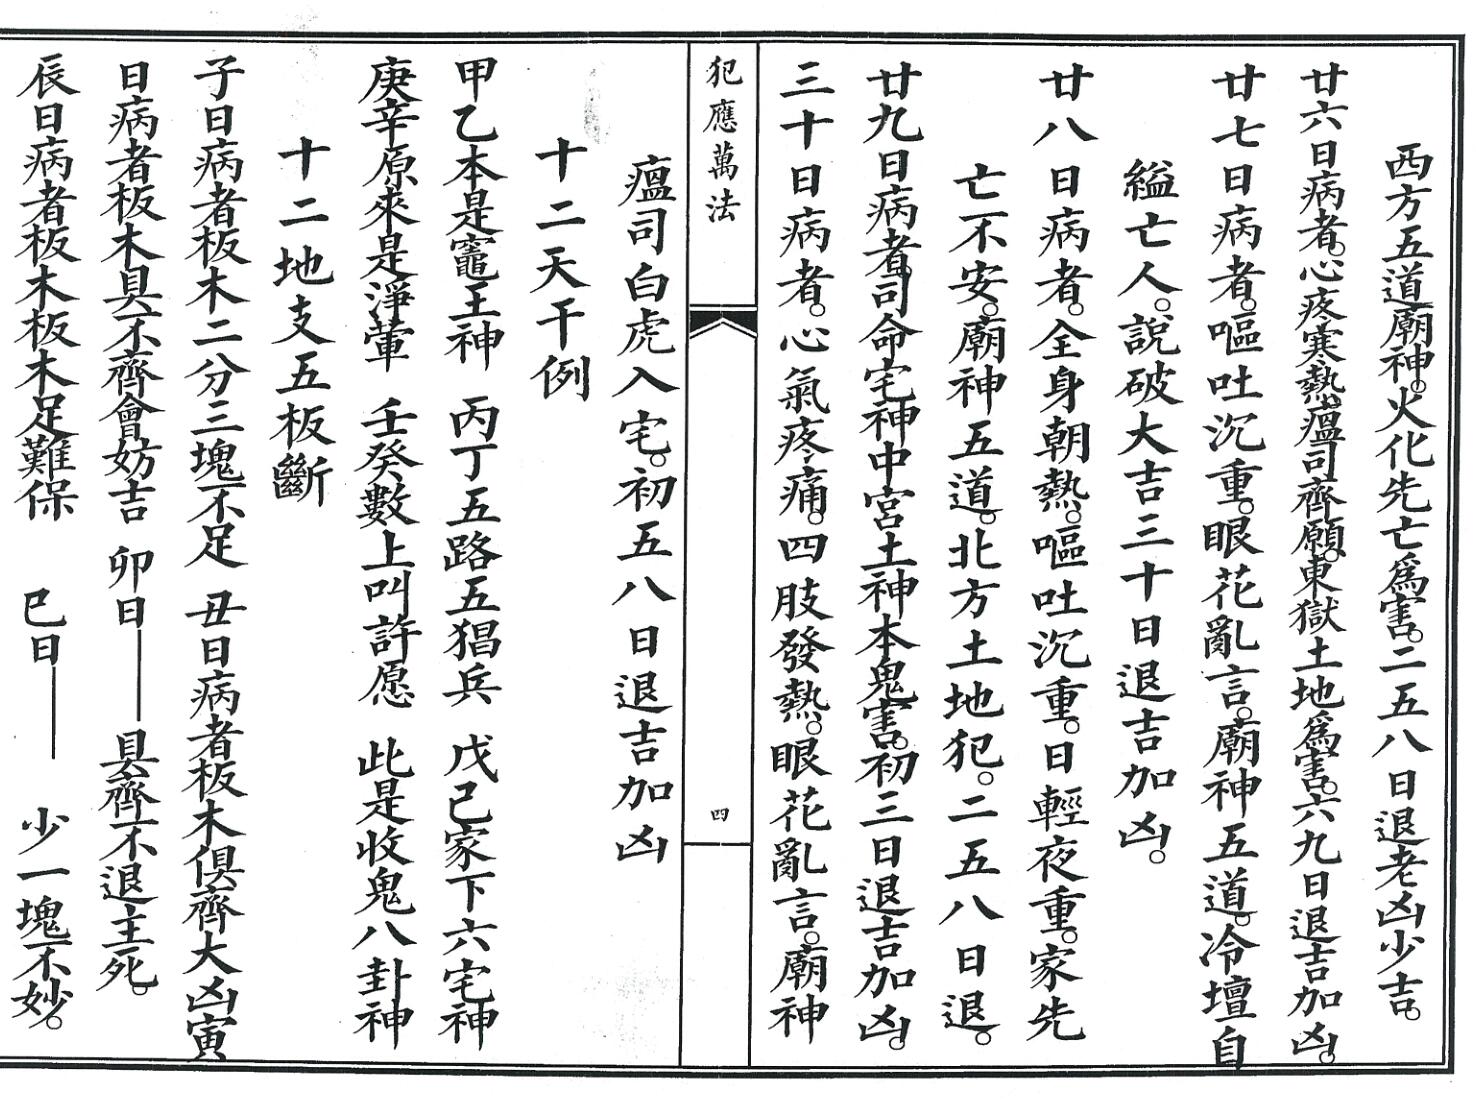 西方五道廟神。火化先亡爲害。二五八日退老凶少吉。
廿六日病者。心疼寒熱。瘟司齊願。東獄土地爲害。六九日退吉加凶。
廿七日病者。嘔吐沉重。眼花亂言。廟神五道。冷壇自
縊亡人。說破大吉三十日退吉加凶。
廿八日病者。全身朝熱。嘔吐沉重。日輕夜重。家先
亡不安。廟神五道。北方土地犯。二五八日退。
廿九日病者。司命宅神中宮土神本鬼害。初三日退吉加凶。
三十日病者。心氣疼痛。四肢發熱。眼花亂言。廟神
犯應萬法
四
瘟司白虎入宅。初五八日退吉加凶
十二天干例
甲乙本是竈王神 丙丁五路五猖兵 戊己家下六宅神
庚辛原來是淨葷 壬癸數上叫許愿 此是收鬼八卦神
十二地支五板斷
子日病者板木二分三塊不足 丑日病者板木俱齊大凶寅
日病者板木具不齊會妨吉 卯日——具齊不退主死。
辰日病者板木板木足難保 巳日——少一塊不妙。